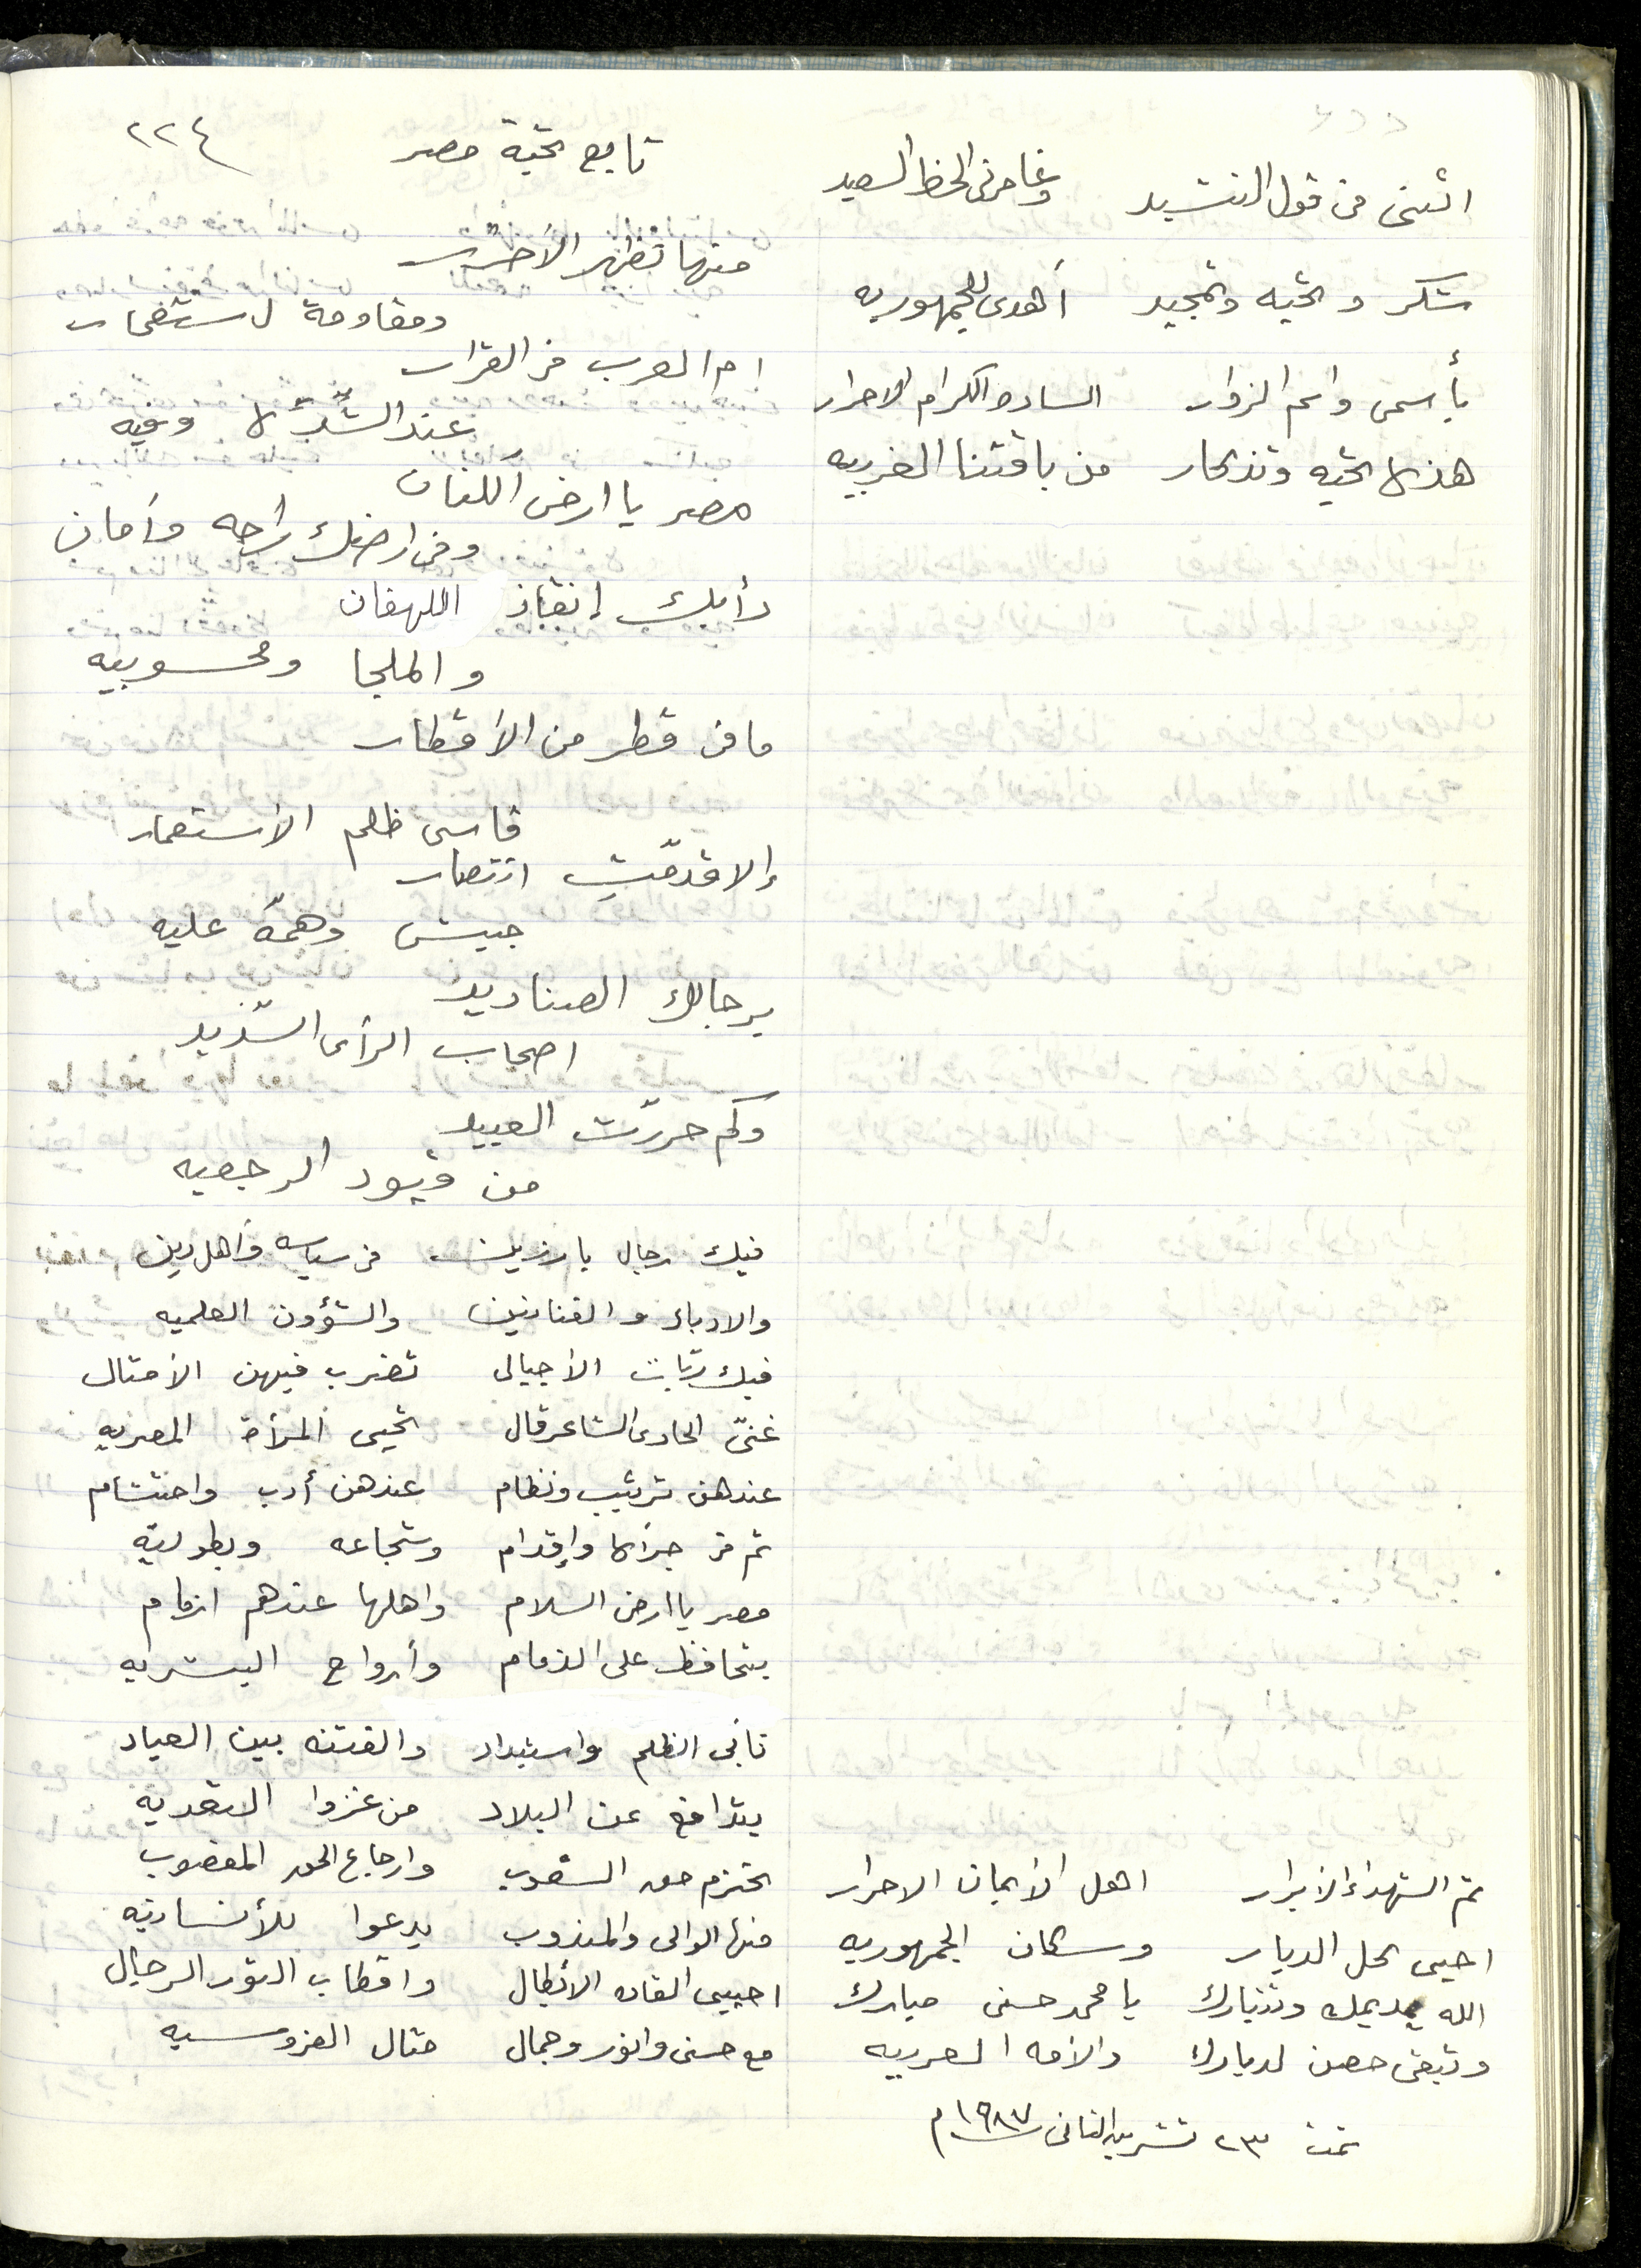 تابع تحية مصر ٢٢٤
اتمنى من قول النشيد وغامرني الحظ السعيد
شكر وتحيه وتمجيد أهدي للجمهوريه
بأسمي واسم الزوار الساده الكرام الاحرار
هذه التحيه وتذكار من باقتنا الغربيه
منها تظهر الأحرار
ومقاومة لاستعمار
ام العرب في القرار
عند الشدّه وفيه
مصر يا ارض الكنان
وفي ارضك راحه وأمان
دأبك إنقاذ اللهفان
والملجا ومحسوبيه
ما في قطر من الأقطار
قاسى ظلم الأستعمار
إلا قدمّتِ انتصار
جيش وهمّه عليه
برجالك الصناديد
اصحاب الرأي السّديد
وكم حررّت العبيد
من قيود الرجعيه
فيك رجال بارزين في سياسه وأهل دين
والادباء والفنانين والشؤون العلميه
فيك ربّات الأجيال تضرب فيهن الأمثال
غنىّ الحادي الشاعر قال تحيى المرأة المصريه
عندهن ترتيب ونظام عندهن أدب واحتشام
تم في جرأه وإقدام وشجاعه وبطوليّه
مصر يا ارض السلام واهلها عندهم
بتحافظ على الذمام وأرواح البشريه
تأبى الظلم واستبداد والفتنه بين العباد
بتدافع عن البلاد من غزوا التعديه
تحترم حق الشعوب وارجاع الحق المغصوب
منها الوالي والمندوب يدعوا للأنسانيّه
احيي القاده الأبطال واقطاب الثوره الرجال
مع حسني وانور وجمال مثال الفروسيه
ثم الشهداء الأبرار اهل الأيمان الاحرار
احيي لكل الديار وسكان الجمهوريه
الله يديمك وتتبارك يا محمد حسني مبارك
وتبقى حصن لديارك والأمه العربيه
تمت ٢٣ تشرين الثاني ١٩٨٧م